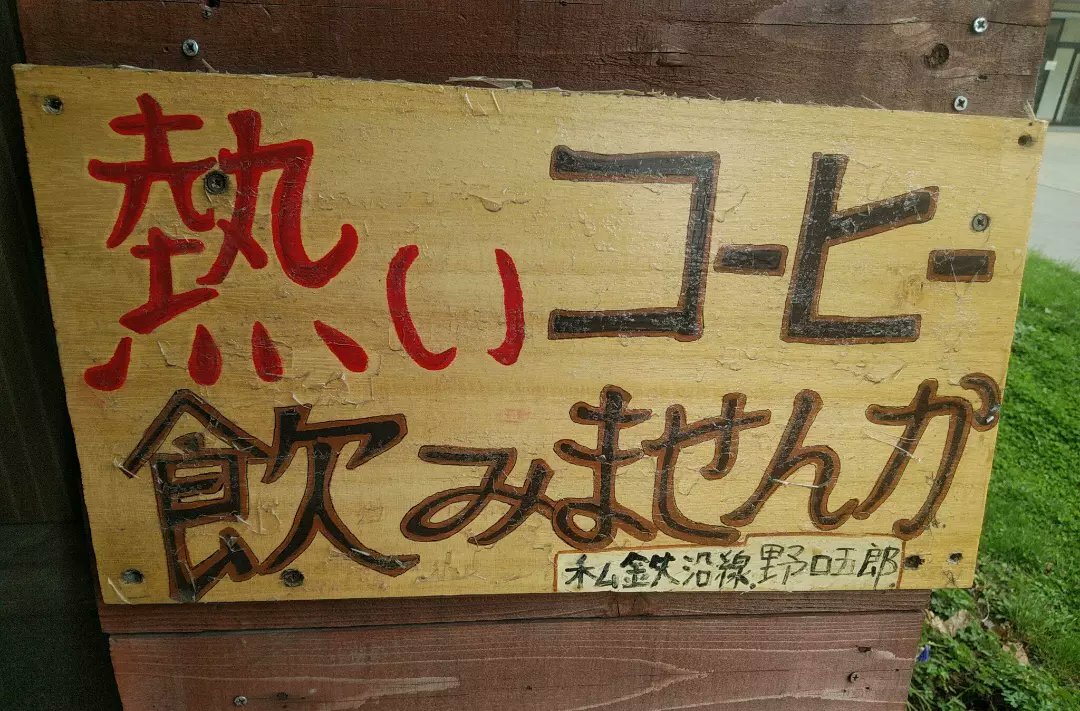 熱いコーヒー
飲みませんか
私鉄沿線.野口五郎